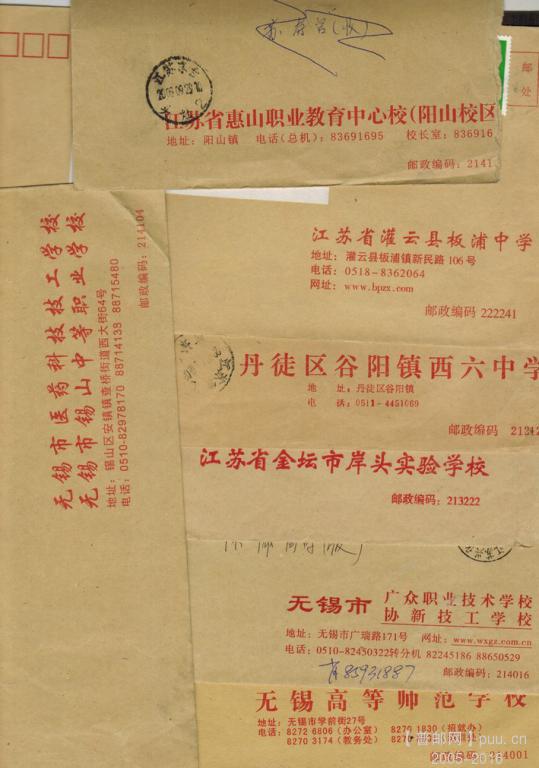 (收)
江苏省惠山职业教育中心校(阳山校区
地址：阳山镇 电话(总机)：83691695 校长室：836916
邮政编码：2141
邮
处
无锡市医药科技技工学校
无锡市锡山中等职业学校
地址：锡山区安镇镇查桥街道西大街64号
电话：0510-82978170 88714138 88715480
邮政编码：214104
江苏省灌云县板浦中学
地址：灌云县板浦镇新民路106号
电话：0518-8362064
网址：www.bpzx.com
邮政编码 222241
丹徒区谷阳镇西六中学
地 址：丹徒区谷阳镇
电 话：0511-4451069
邮政编码 2121
江苏省金坛市岸头实验学校
邮政编码：213222
无锡市 广众职业技术学校
协新技工学校
地址：无锡市广瑞路171号 网址：www.wxgz.com.cn
电话：0510-82450322转分机 82245186 88650529
邮政编码：214016
85931887
无锡高等师范学校
地址：无锡市学前街27号
电话：8272 6806 (办公室) 8270 1830 (招就办)
8270 3174 (教务处)
214001
【普邮网】puu.cn
2005-2016